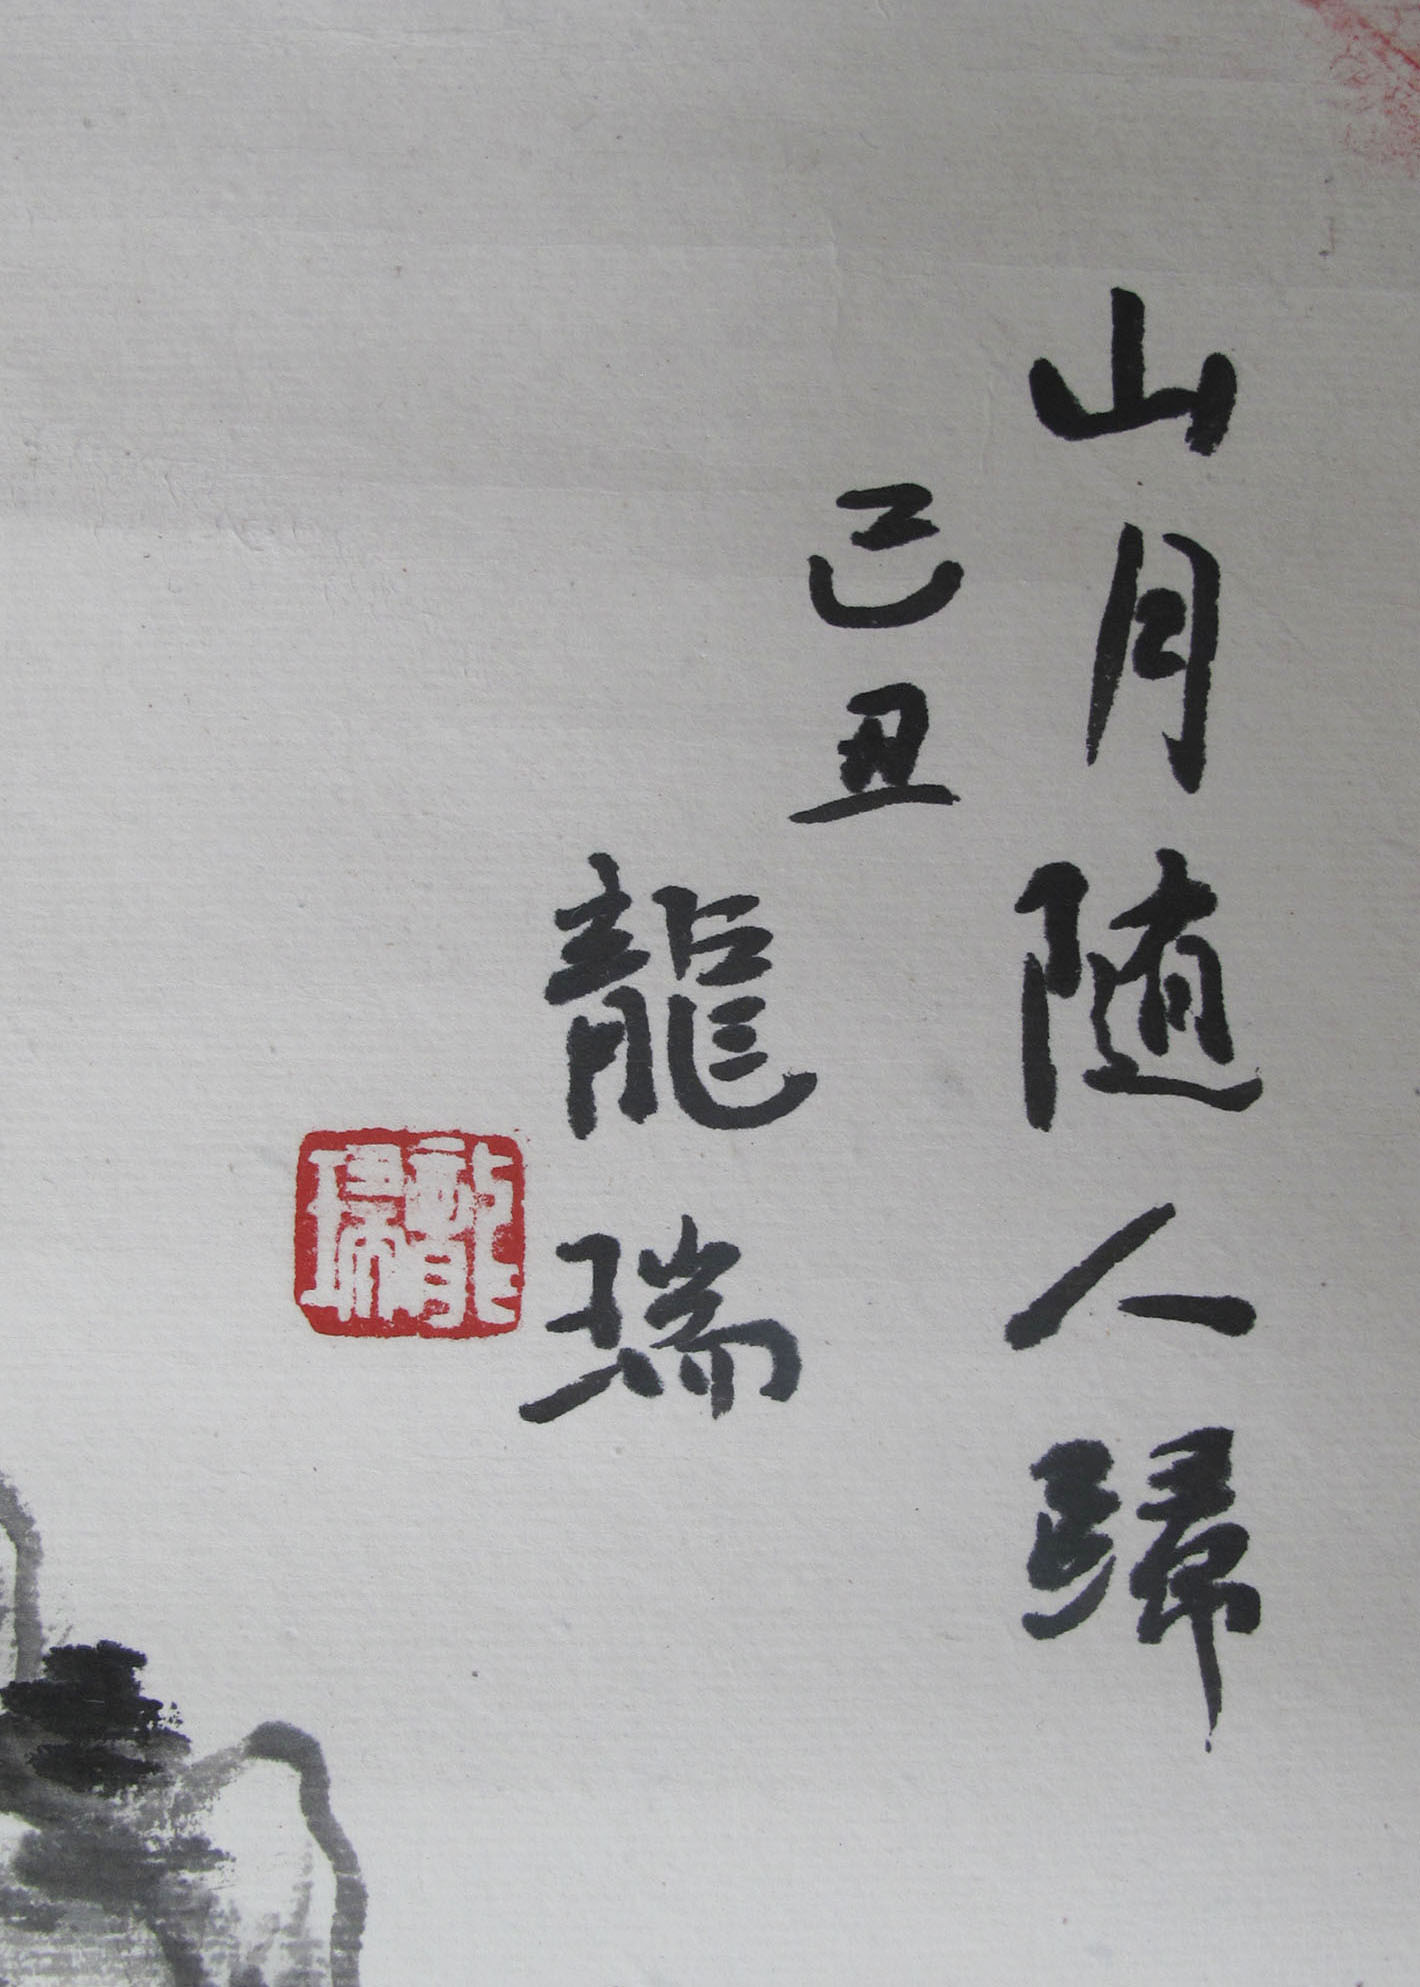 山月随人歸
己丑
龍瑞
龍瑞